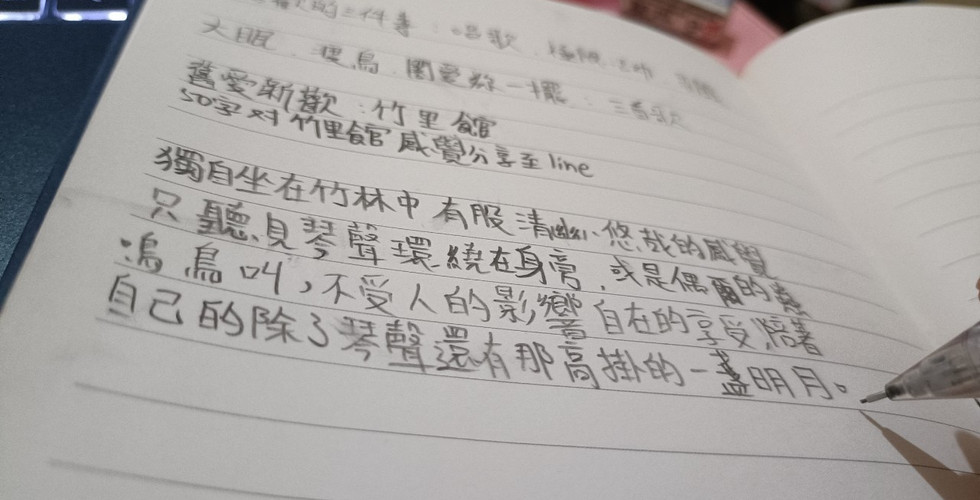 歡的三件事：唱歌
大眼
舊愛新歡：竹里館
50字对竹里館感覺分享至line
獨自坐在竹林中有股清幽、悠哉的感覺
只聽見琴聲環繞在身旁，或是偶爾的蟲
鳴鳥叫，不受人的影響自在的享受陪著
自己的除了琴聲還有那高掛的一盞明月。